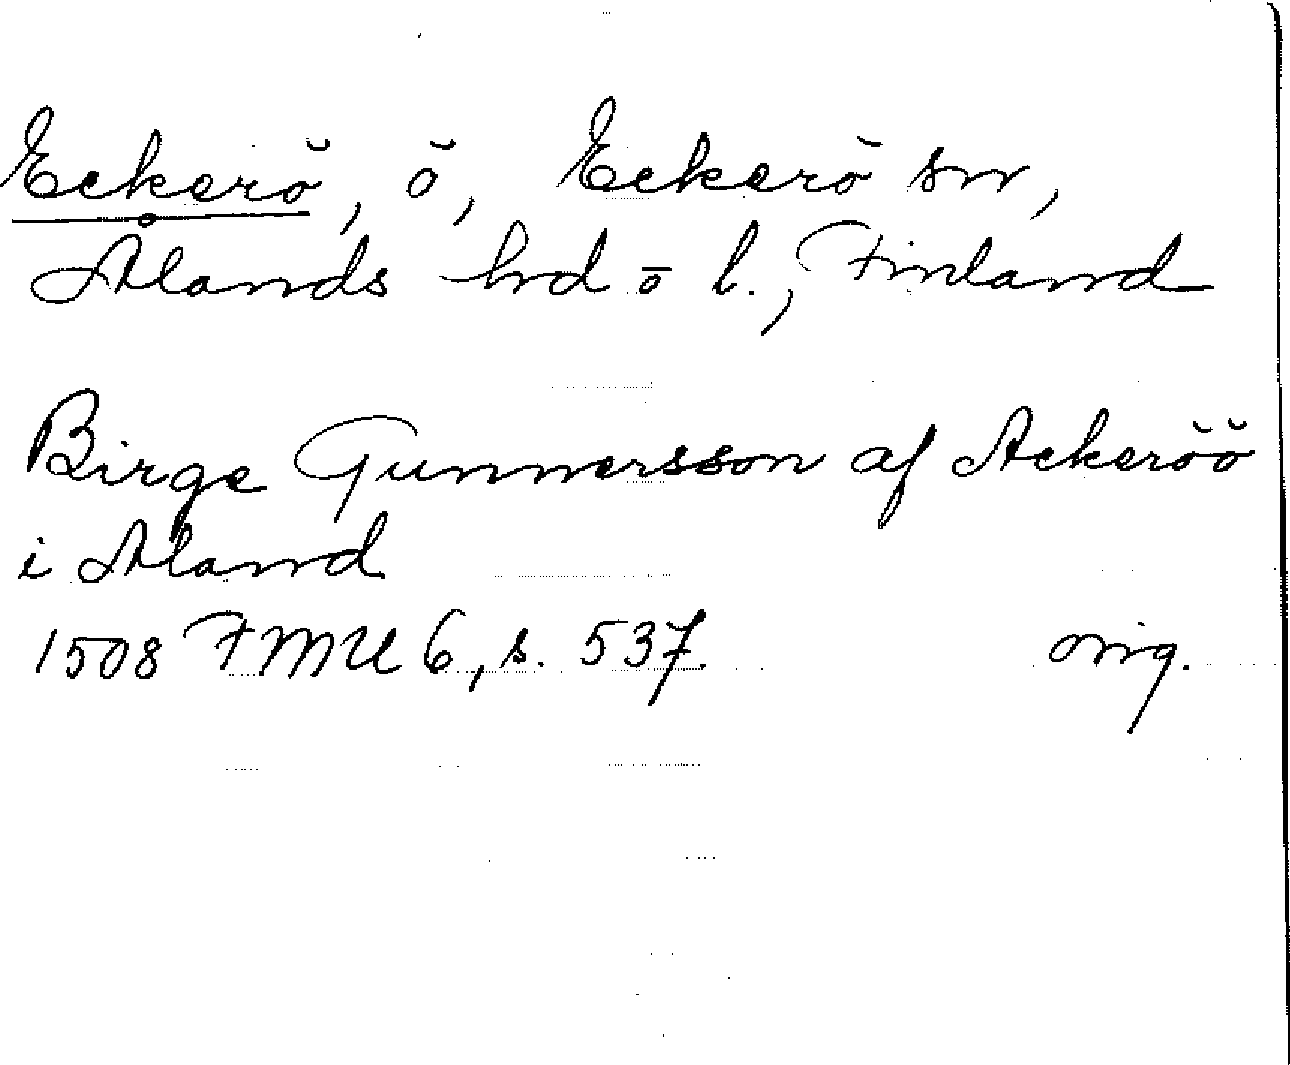 Eckerö, ö, Eckerö sn,
Ålands hd o l., Finland
Birge Gunnersson af Ackeröö
i Aland
1508 FMU 6, s. 537. orig.